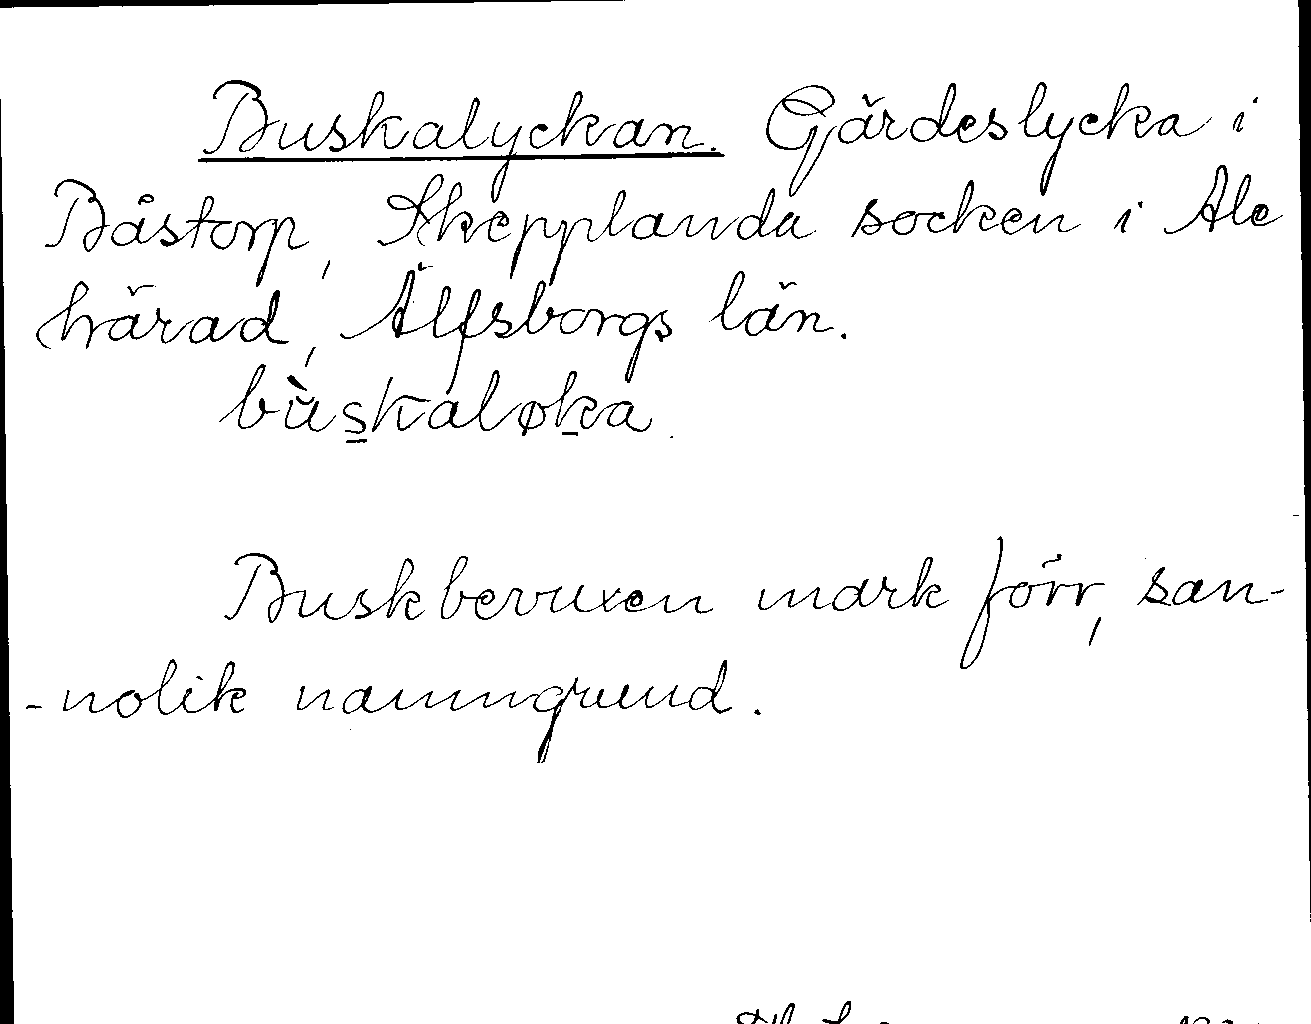 Buskalyckan. Gärdeslycka i
Båstorp, Skepplanda socken i Ale
härad, Älfsborgs län.
bùskaløka.
Buskbevuxen mark förr, san-
-nolik namngrund.